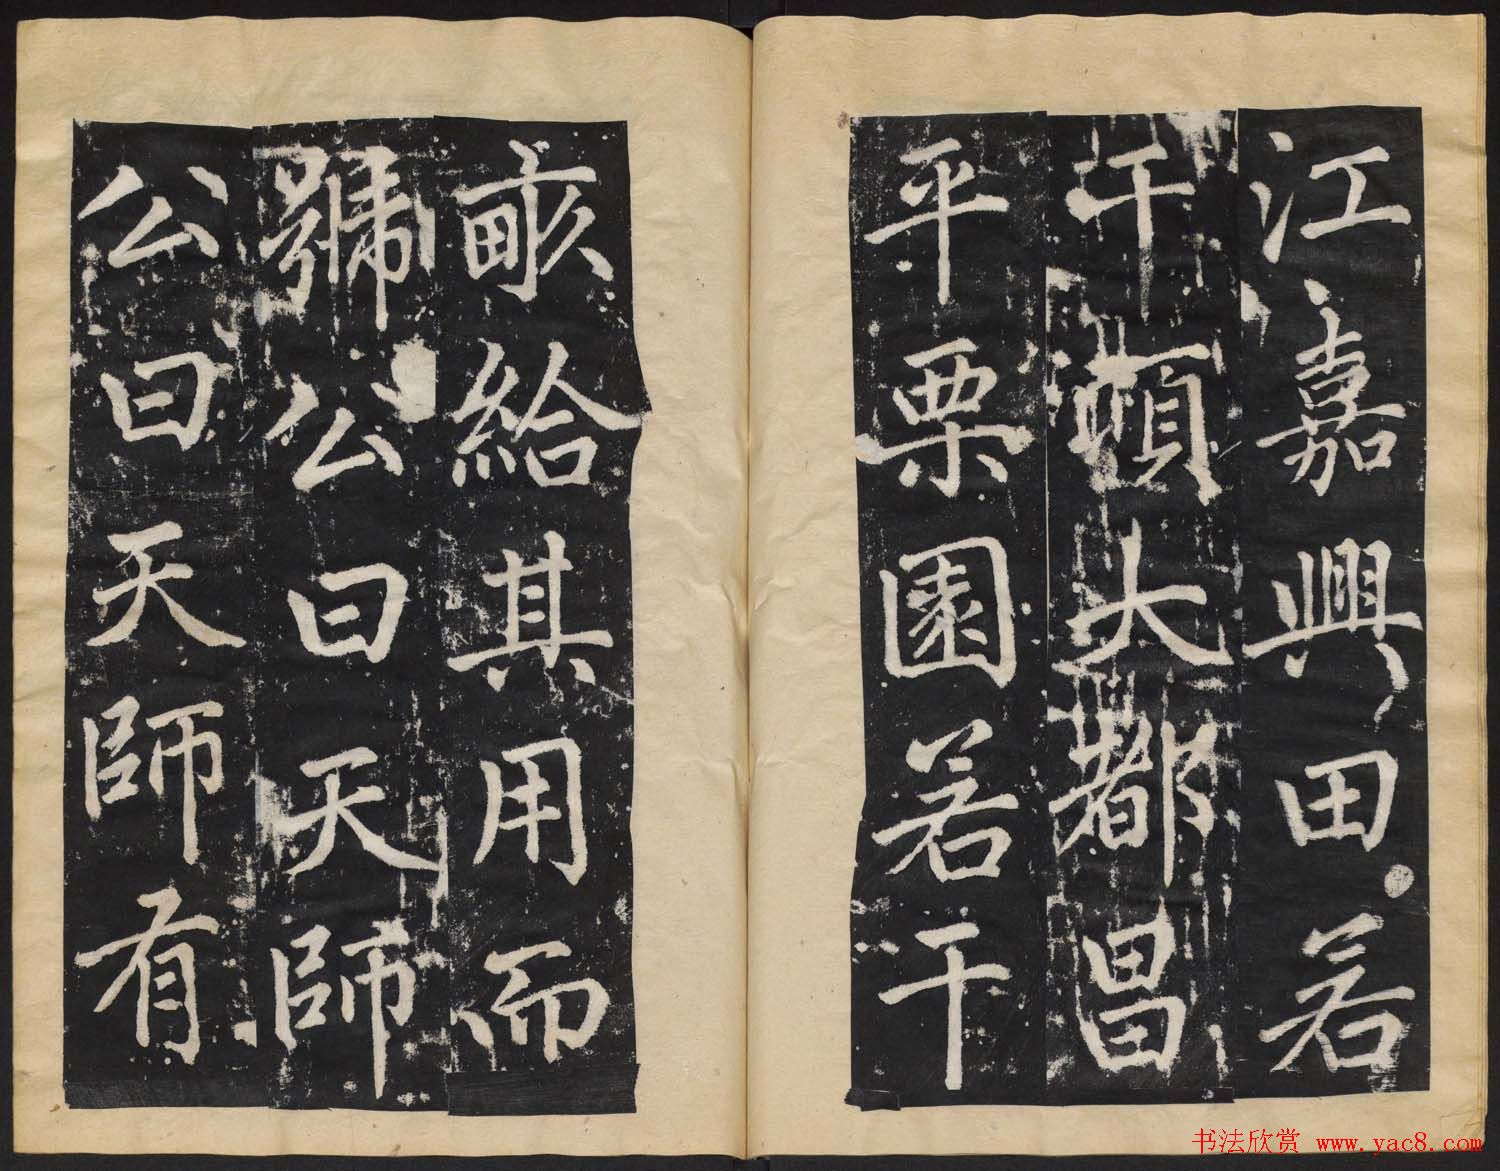 江嘉興田若
干頃大都昌
平栗園若干
畝給其用而
號公曰天師
公曰天師有
书法欣赏 www.yac8.com